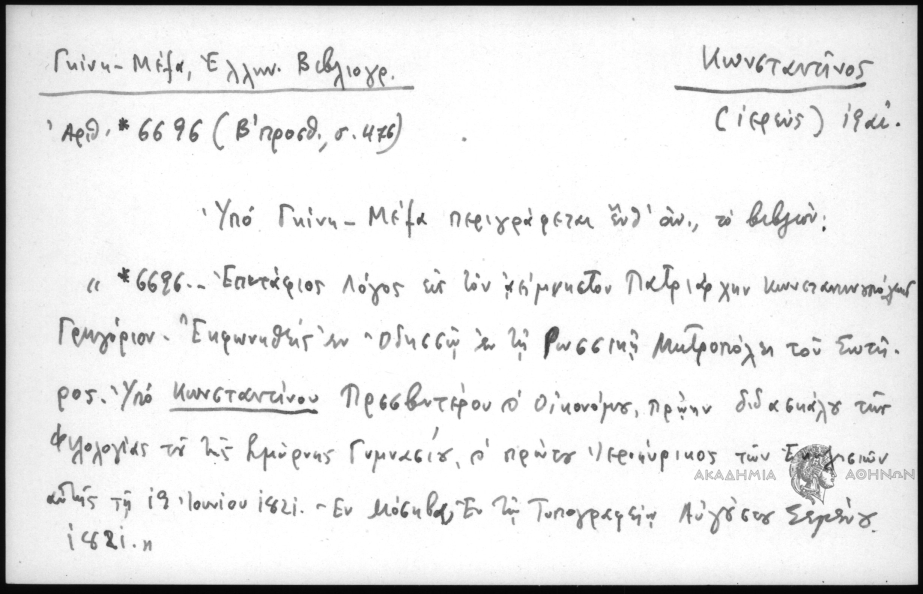 Γκίνη - Μέξα, Ἑλλην. Βιβλιογρ.
Κωνσταντῖνος
Ἀριθ. *6696 (Β' προσθ., σ. 476)
(ἱερεύς) 1821.
Ὑπὸ Γκίνη - Μέξα περιγράφεται ἔνθ' ἀν., τὸ βιβλίον:
"*6696.- Ἐπιτάφιος Λόγος εἰς τὸν ἀείμνηστον Πατριάρχην Κωνσταντινουπόλεως
Γρηγόριον. Ἐκφωνηθεὶς ἐν Ὀδησσῷ ἐν τῇ Ρωσσικῇ Μητροπόλει τοῦ Σωτῆ-
ρος. Ὑπὸ Κωνσταντίνου Πρεσβυτέρου Οἰκονόμου, πρώην διδασκάλου τῆς
Φιλολογίας τοῦ τῆς Σμύρνης Γυμνασίου, πρώτου Ἱεροκήρυκος τῶν Ἐκκλησιῶν
αὐτῆς τῇ 19 Ἰουνίου 1821. - Ἐν Μόσχᾳ, Ἐν τῇ Τυπογραφείῳ Αὐγούστου Σεμένου
1821."
ΑΚΑΔΗΜΙΑ ΑΘΗΝΩΝ